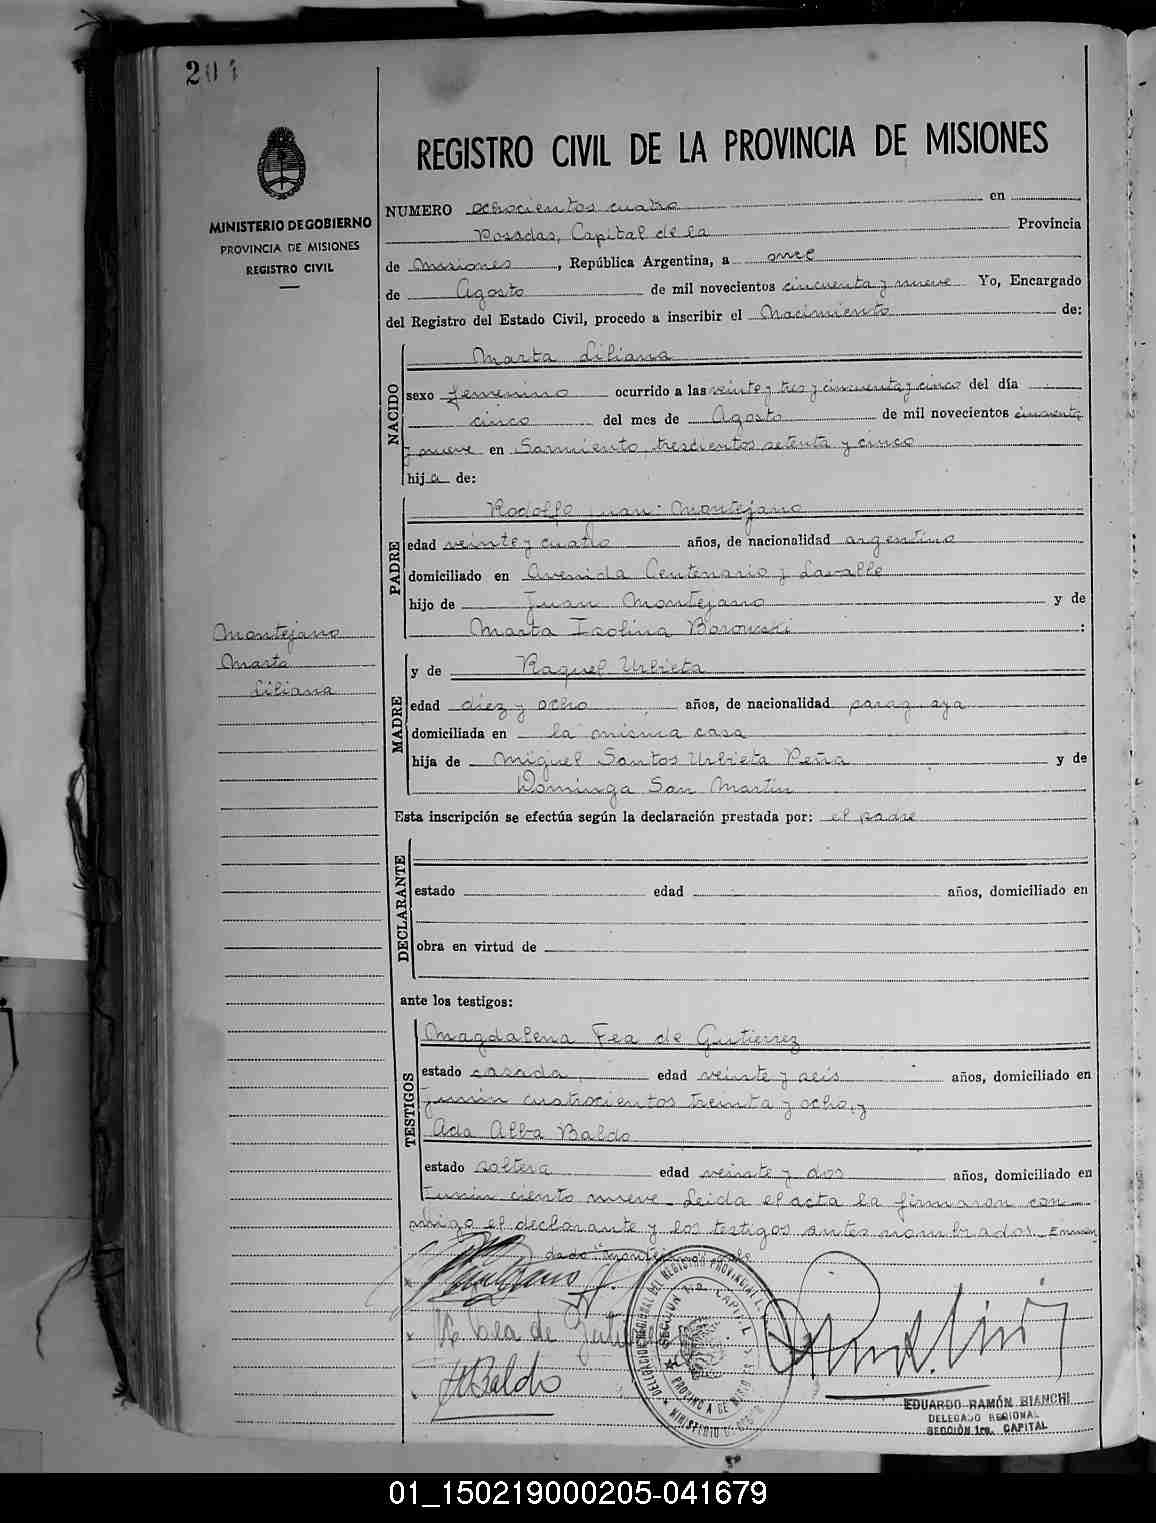 204
REGISTRO CIVIL DE LA PROVINCIA DE MISIONES
MINISTERIO DE GOBIERNO
PROVINCIA DE MISIONES
REGISTRO CIVIL
NUMERO ochocientos cuatro en
Posadas, Capital de la Provincia
de Misiones, República Argentina, a once
de Agosto de mil novecientos cincuenta y nueve Yo, Encargado
del Registro del Estado Civil, procedo a inscribir el Nacimiento de:
NACIDO
Marta Liliana
sexo femenino ocurrido a las veinte y tres y cincuenta y cinco del día
cinco del mes de Agosto de mil novecientos cincuenta
y nueve en Sarmiento, trescientos setenta y cinco
hija de:
PADRE
Rodolfo Juan Montejano
edad veinte y cuatro años, de nacionalidad argentino
domiciliado en Avenida Centenario y Lavalle
hijo de Juan Montejano y de
Marta Isolina Borowski :
Montejano
Marta
Liliana
MADRE
y de Raquel Urbieta
edad diez y ocho años, de nacionalidad paraguaya
domiciliada en la misma casa
hija de Miguel Santos Urbieta Peña y de
Dominga San Martín
Esta inscripción se efectúa según la declaración prestada por: el padre
DECLARANTE
estado edad años, domiciliado en
obra en virtud de
ante los testigos:
TESTIGOS
Magdalena Fea de Gutierrez
estado casada, edad veinte y seis años, domiciliado en
Junín cuatrocientos treinta y ocho, y
Ada Alba Baldo
estado soltera edad veinte y dos años, domiciliado en
Junín ciento nueve. Leida el acta la firmaron con
migo el declarante y los testigos antes nombrados. Enmen
dado "Montej
M. Fea de Gutierrez
A Baldo
DELEGACION REGIONAL DEL REGISTRO PROVINCIAL
SECCION 1ra. CAPITAL
PROVINCIA DE MISIONES
MINISTERIO DE GOB
EDUARDO RAMÓN BIANCHI
DELEGADO REGIONAL
SECCIÓN 1ra. CAPITAL
01_150219000205-041679